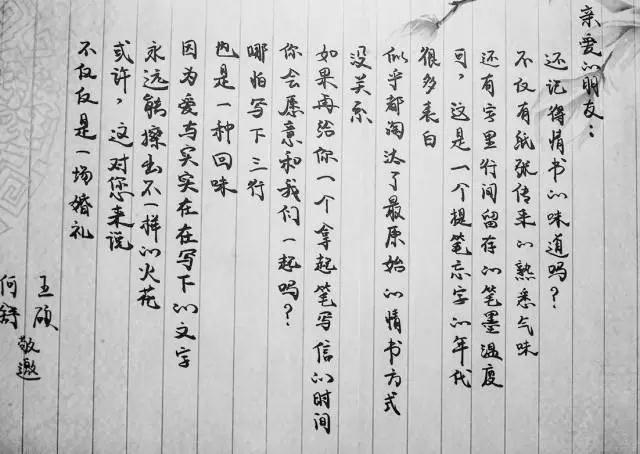 亲爱的朋友：
还记得情书的味道吗？
不仅有纸张传来的熟悉气味
还有字里行间留存的笔墨温度
可，这是一个提笔忘字的年代
很多表白
似乎都淘汰了最原始的情书方式
没关系
如果再给你一个拿起笔写信的时间
你会愿意和我们一起吗？
哪怕写下三行
也是一种回味
因为爱与实实在在写下的文字
永远能擦出不一样的火花
或许，这对您来说
不仅仅是一场婚礼
王硕
何舒
敬邀